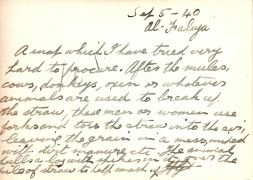 Sep 5-40
Al-Faluja
A map which I have tried very
hard to procure. After the mules,
cows, donkeys, oxen or whatever
animals are used to break up
the straw, the men or women use
forks and toss the straw into the air,
leaving the grain in a mess, mixed
with dirt manure, etc. The animal
pulls a log with spikes in it over the
pile of straw to help mash it